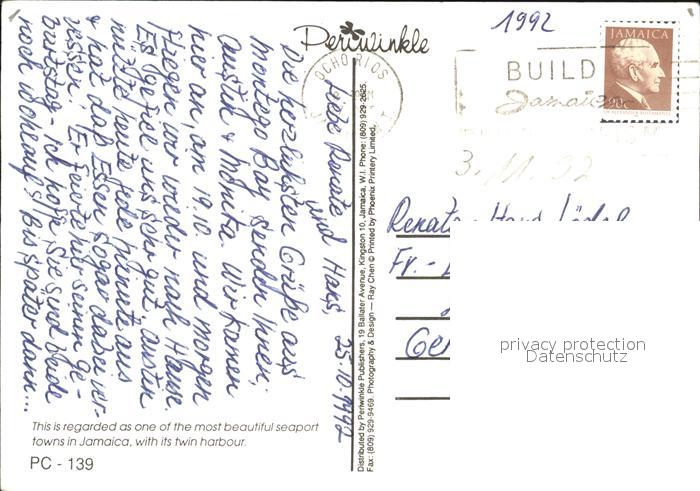 1992
Periwinkle
JAMAICA
90c
SIR ALEXANDER BUSTAMANTE
OCHO RIOS
BUILD
Jamaica
3.11.92
Liebe Renate
und Hans 25.10.1992
Die herzlichsten Grüße aus
Montego Bay senden Ihnen,
Austin + Monika. Wir kamen
hier an, am 19.10 und morgen
fliegen wir wieder nach Hause.
Es gefiel uns sehr gut. Austin
nützte heute jede Minute aus
+ hat das Essen sogar dazu ver-
gessen. Er feierte hier seinen Ge-
burtstag. Ich hoffe, Sie sind beide
noch wohlauf! Bis später dann...
Distributed by Periwinkle Publishers, 19 Ballater Avenue, Kingston 10, Jamaica, W.I. Phone: (809) 929-2625.
Fax: (809) 929-9469. Photography & Design — Ray Chen © Printed by Phoenix Printery Limited.
Renate, Hans
Fr.-
Ger
privacy protection
Datenschutz
This is regarded as one of the most beautiful seaport
towns in Jamaica, with its twin harbour.
PC - 139